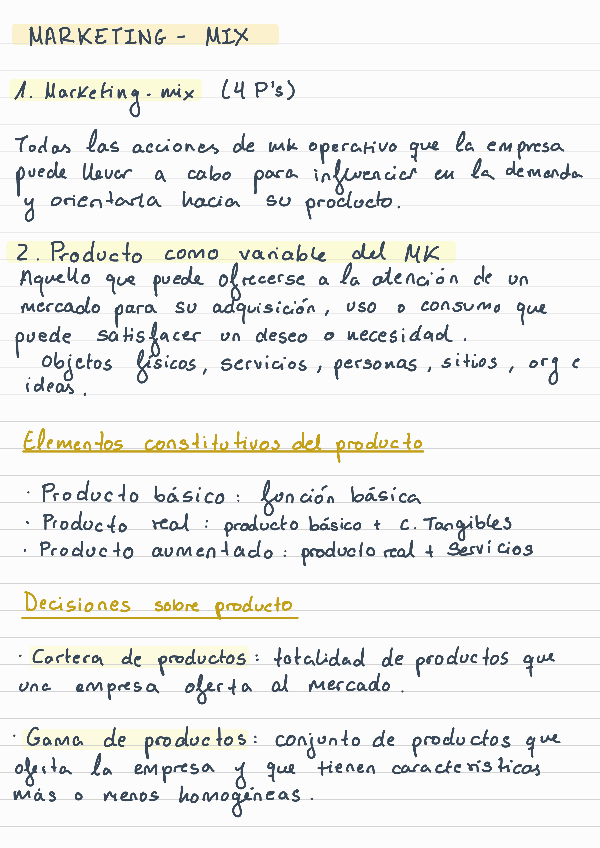 MARKETING - MIX
1. Marketing-mix (4 P's)
Todas las acciones de mk operativo que la empresa
puede llevar a cabo para influenciar en la demanda
y orientarla hacia su producto.
2. Producto como variable del MK
Aquello que puede ofrecerse a la atención de un
mercado para su adquisición, uso o consumo que
puede satisfacer un deseo o necesidad.
Objetos físicos, servicios, personas, sitios, org e
ideas.
Elementos constitutivos del producto
· Producto básico: función básica
· Producto real: producto básico + C. Tangibles
· Producto aumentado: producto real + Servicios
Decisiones sobre producto
· Cartera de productos: totalidad de productos que
una empresa oferta al mercado.
· Gama de productos: conjunto de productos que
oferta la empresa y que tienen características
más o menos homogéneas.